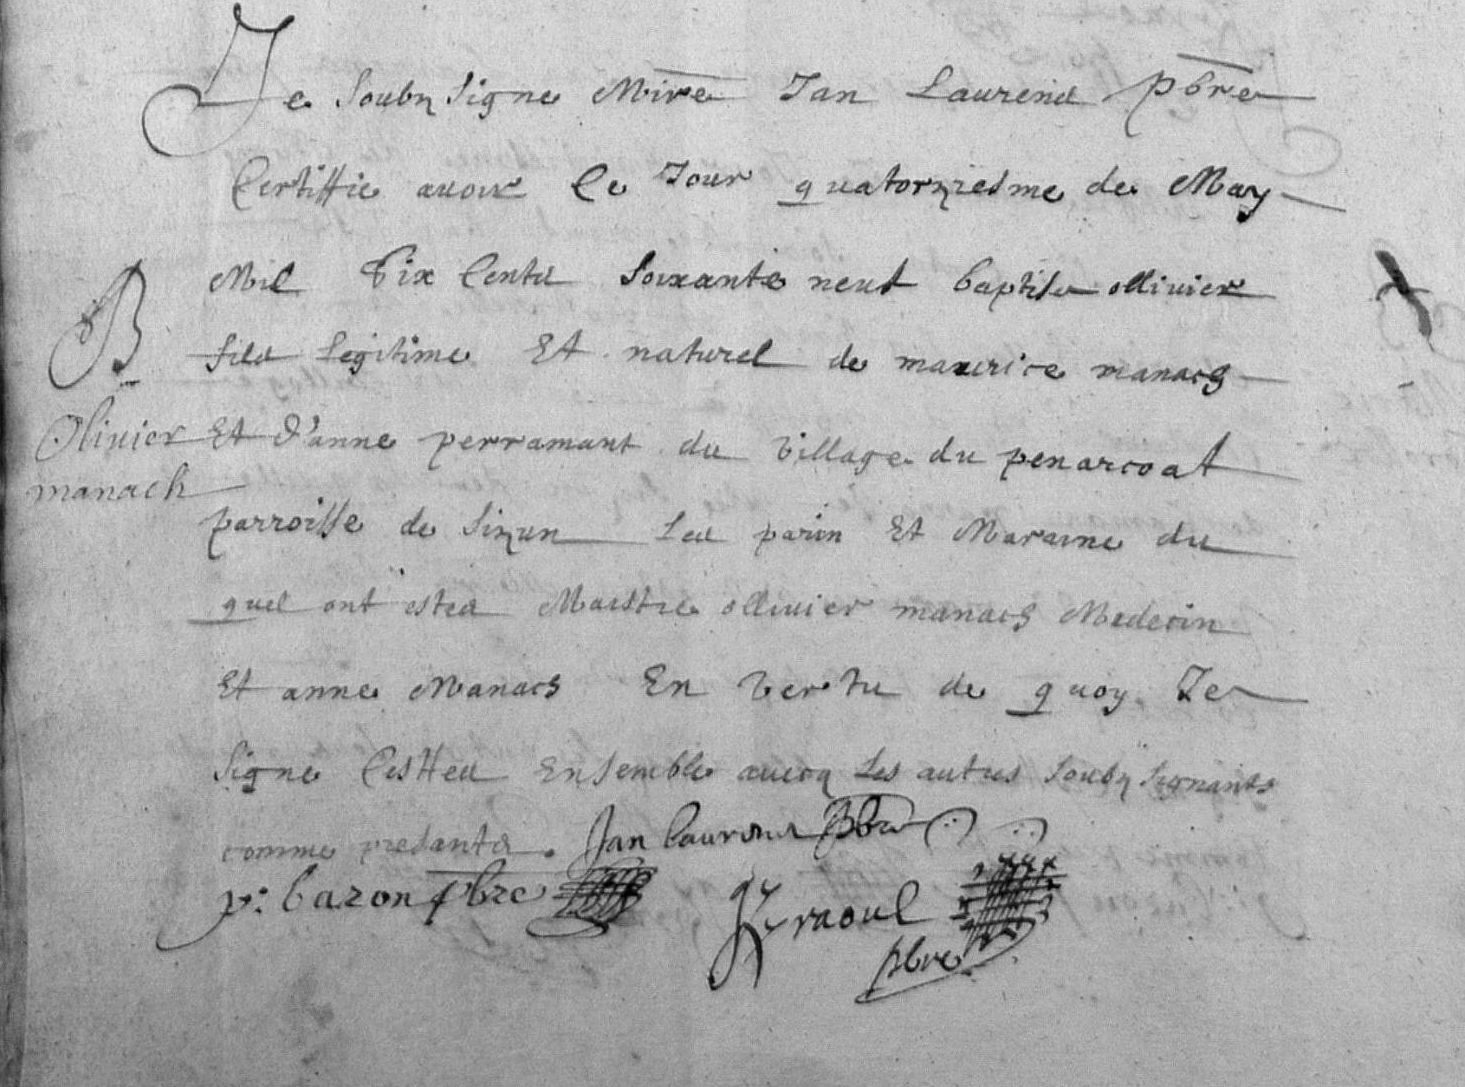 Je soubzsigne Mire Jan Laurens pbre
Certiffie avoir Ce Jour quatorziesme de May
Mil Six Cents soixante neuf baptise ollivier
B
fils legitime Et naturel de maurice manach
Olivier
Et d'anne perramant du village du penarcoat
manach
parroisse de sizun Les parin Et Maraine du
quel ont estes Maistre ollivier manach Medecin
Et anne Manach En vertu de quoy Je
signe Cestes Ensemble avecq Les autres soubz signants
comme presants. Jan laurens pbre
p: baron pbre Kraoul
pbre